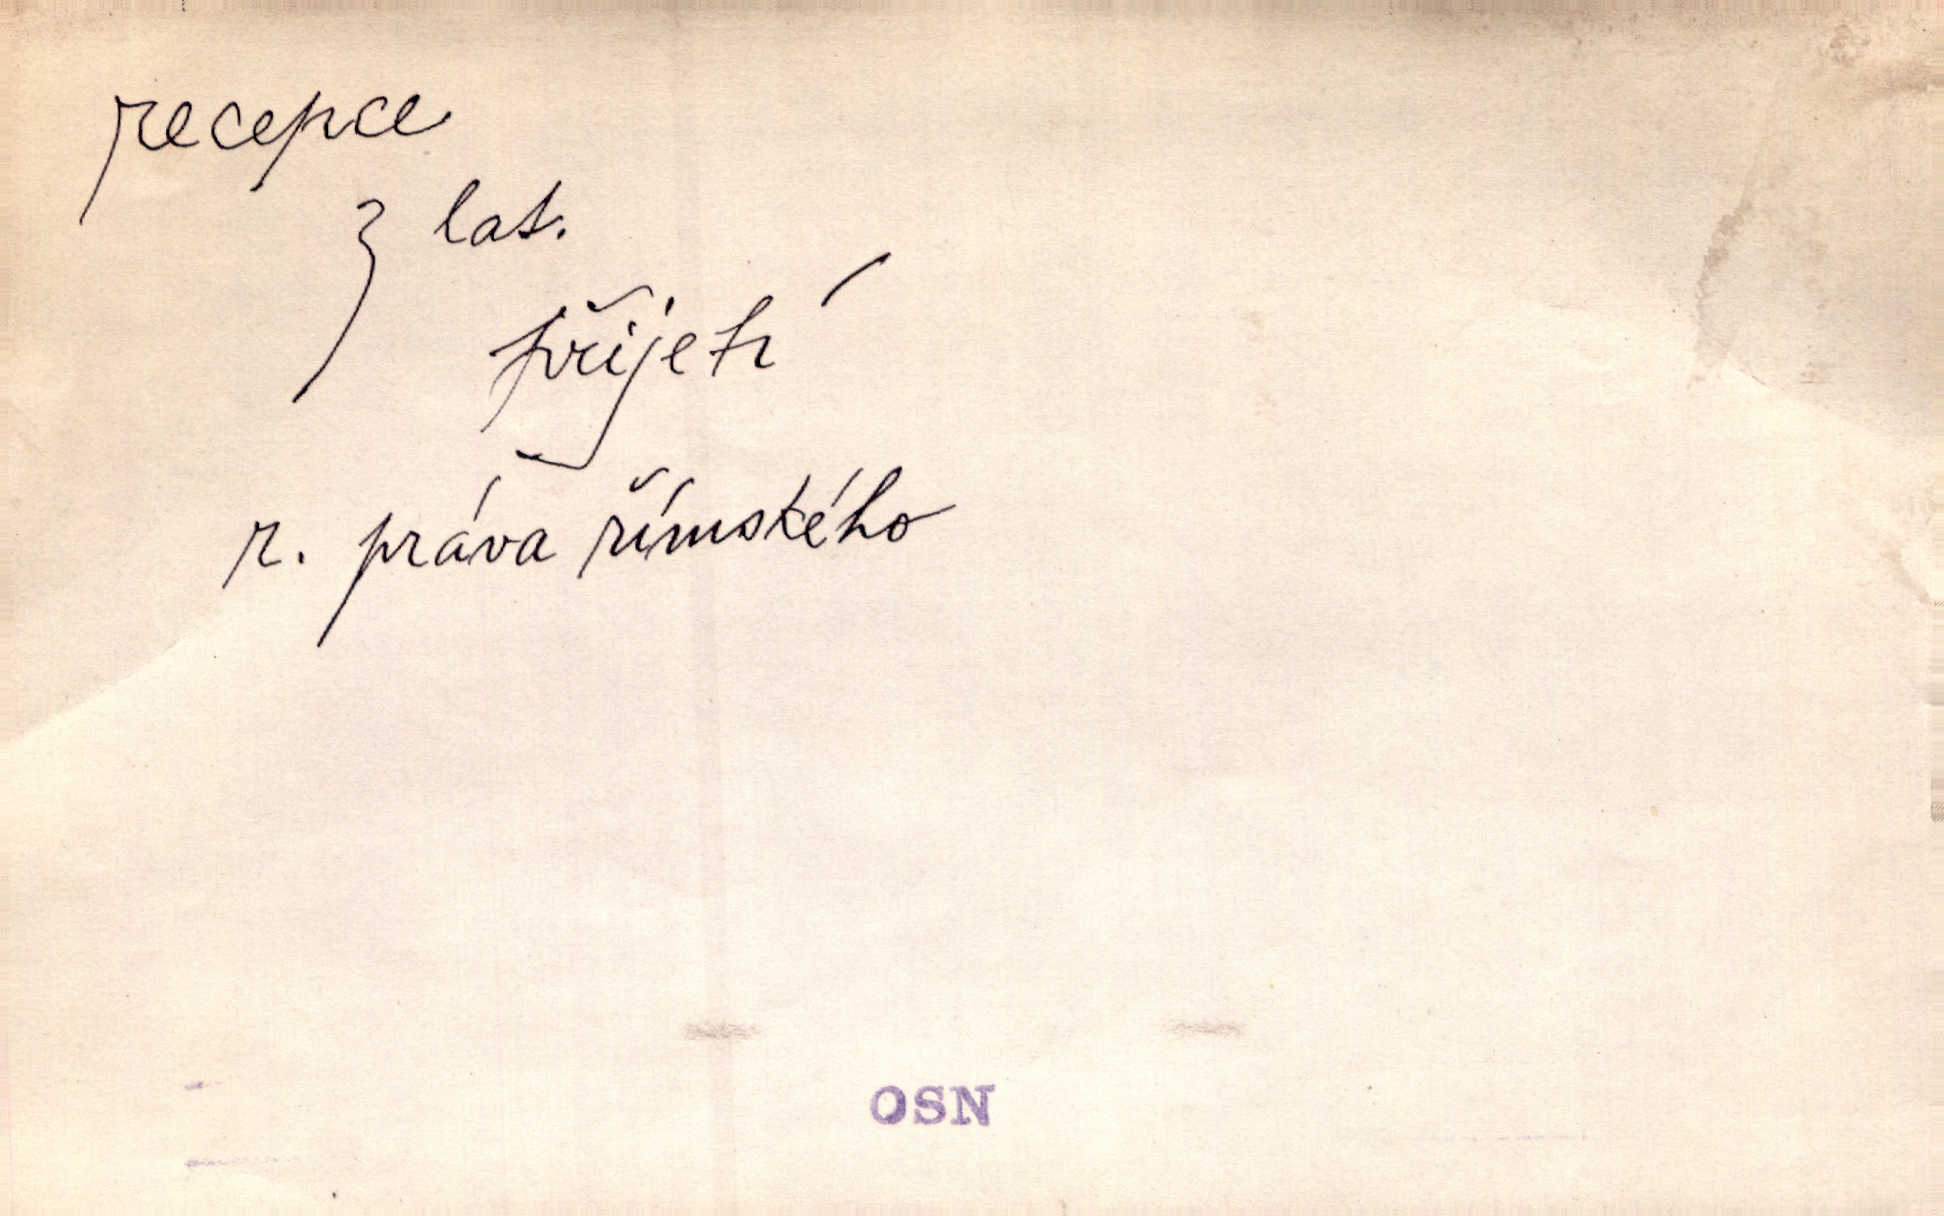 recepce
z lat.
přijetí
r. práva římského
OSN